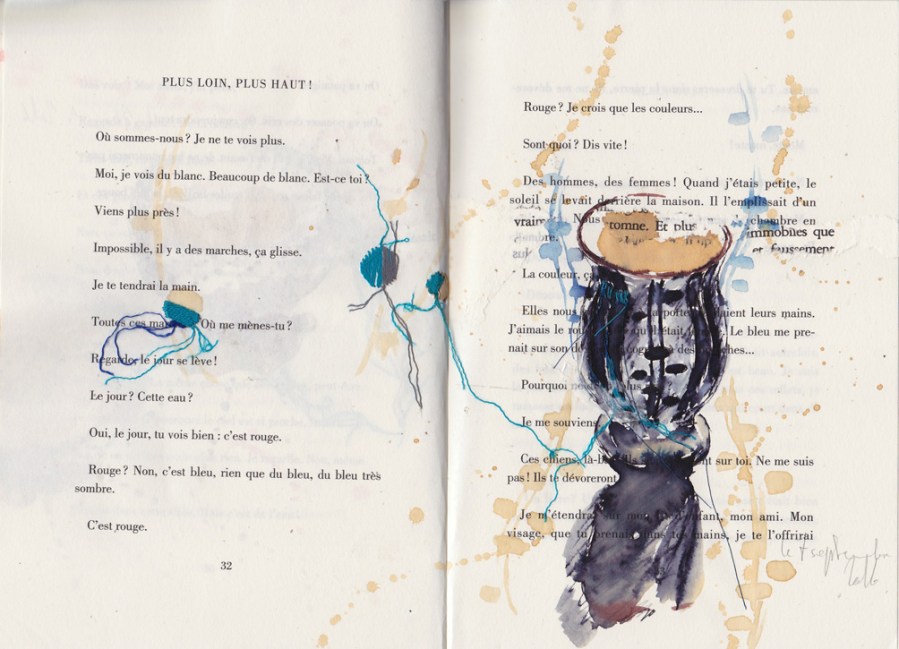 PLUS LOIN, PLUS HAUT !
Où sommes-nous ? Je ne te vois plus.
Moi, je vois du blanc. Beaucoup de blanc. Est-ce toi ?
Viens plus près !
Impossible, il y a des marches, ça glisse.
Je te tendrai la main.
Toutes ces Où me mènes-tu ?
Regarde, le jour se lève !
Le jour ? Cette eau ?
Oui, le jour, tu vois bien : c'est rouge.
Rouge ? Non, c'est bleu, rien que du bleu, du bleu très
sombre.
C'est rouge.
32
Rouge ? Je crois que les couleurs...
Sont quoi ? Dis vite !
Des hommes, des femmes ! Quand j'étais petite, le
soleil se levait derrière la maison. Il l'emplissait d'un
vraie Nous romne. Et plus chambre en immobiles que
et faussement
La couleur, ça
Elles nous la porte leurs mains.
J'aimais le était Le bleu me pre-
nait sur son des
Pourquoi plus
Je me souviens
Ces chiens, là-bas sur toi. Ne me suis
pas ! Ils te dévoreront
Je m'étendrai sur mon mon ami. Mon
visage, que tu prenais dans tes mains, je te l'offrirai
le 7 septembre